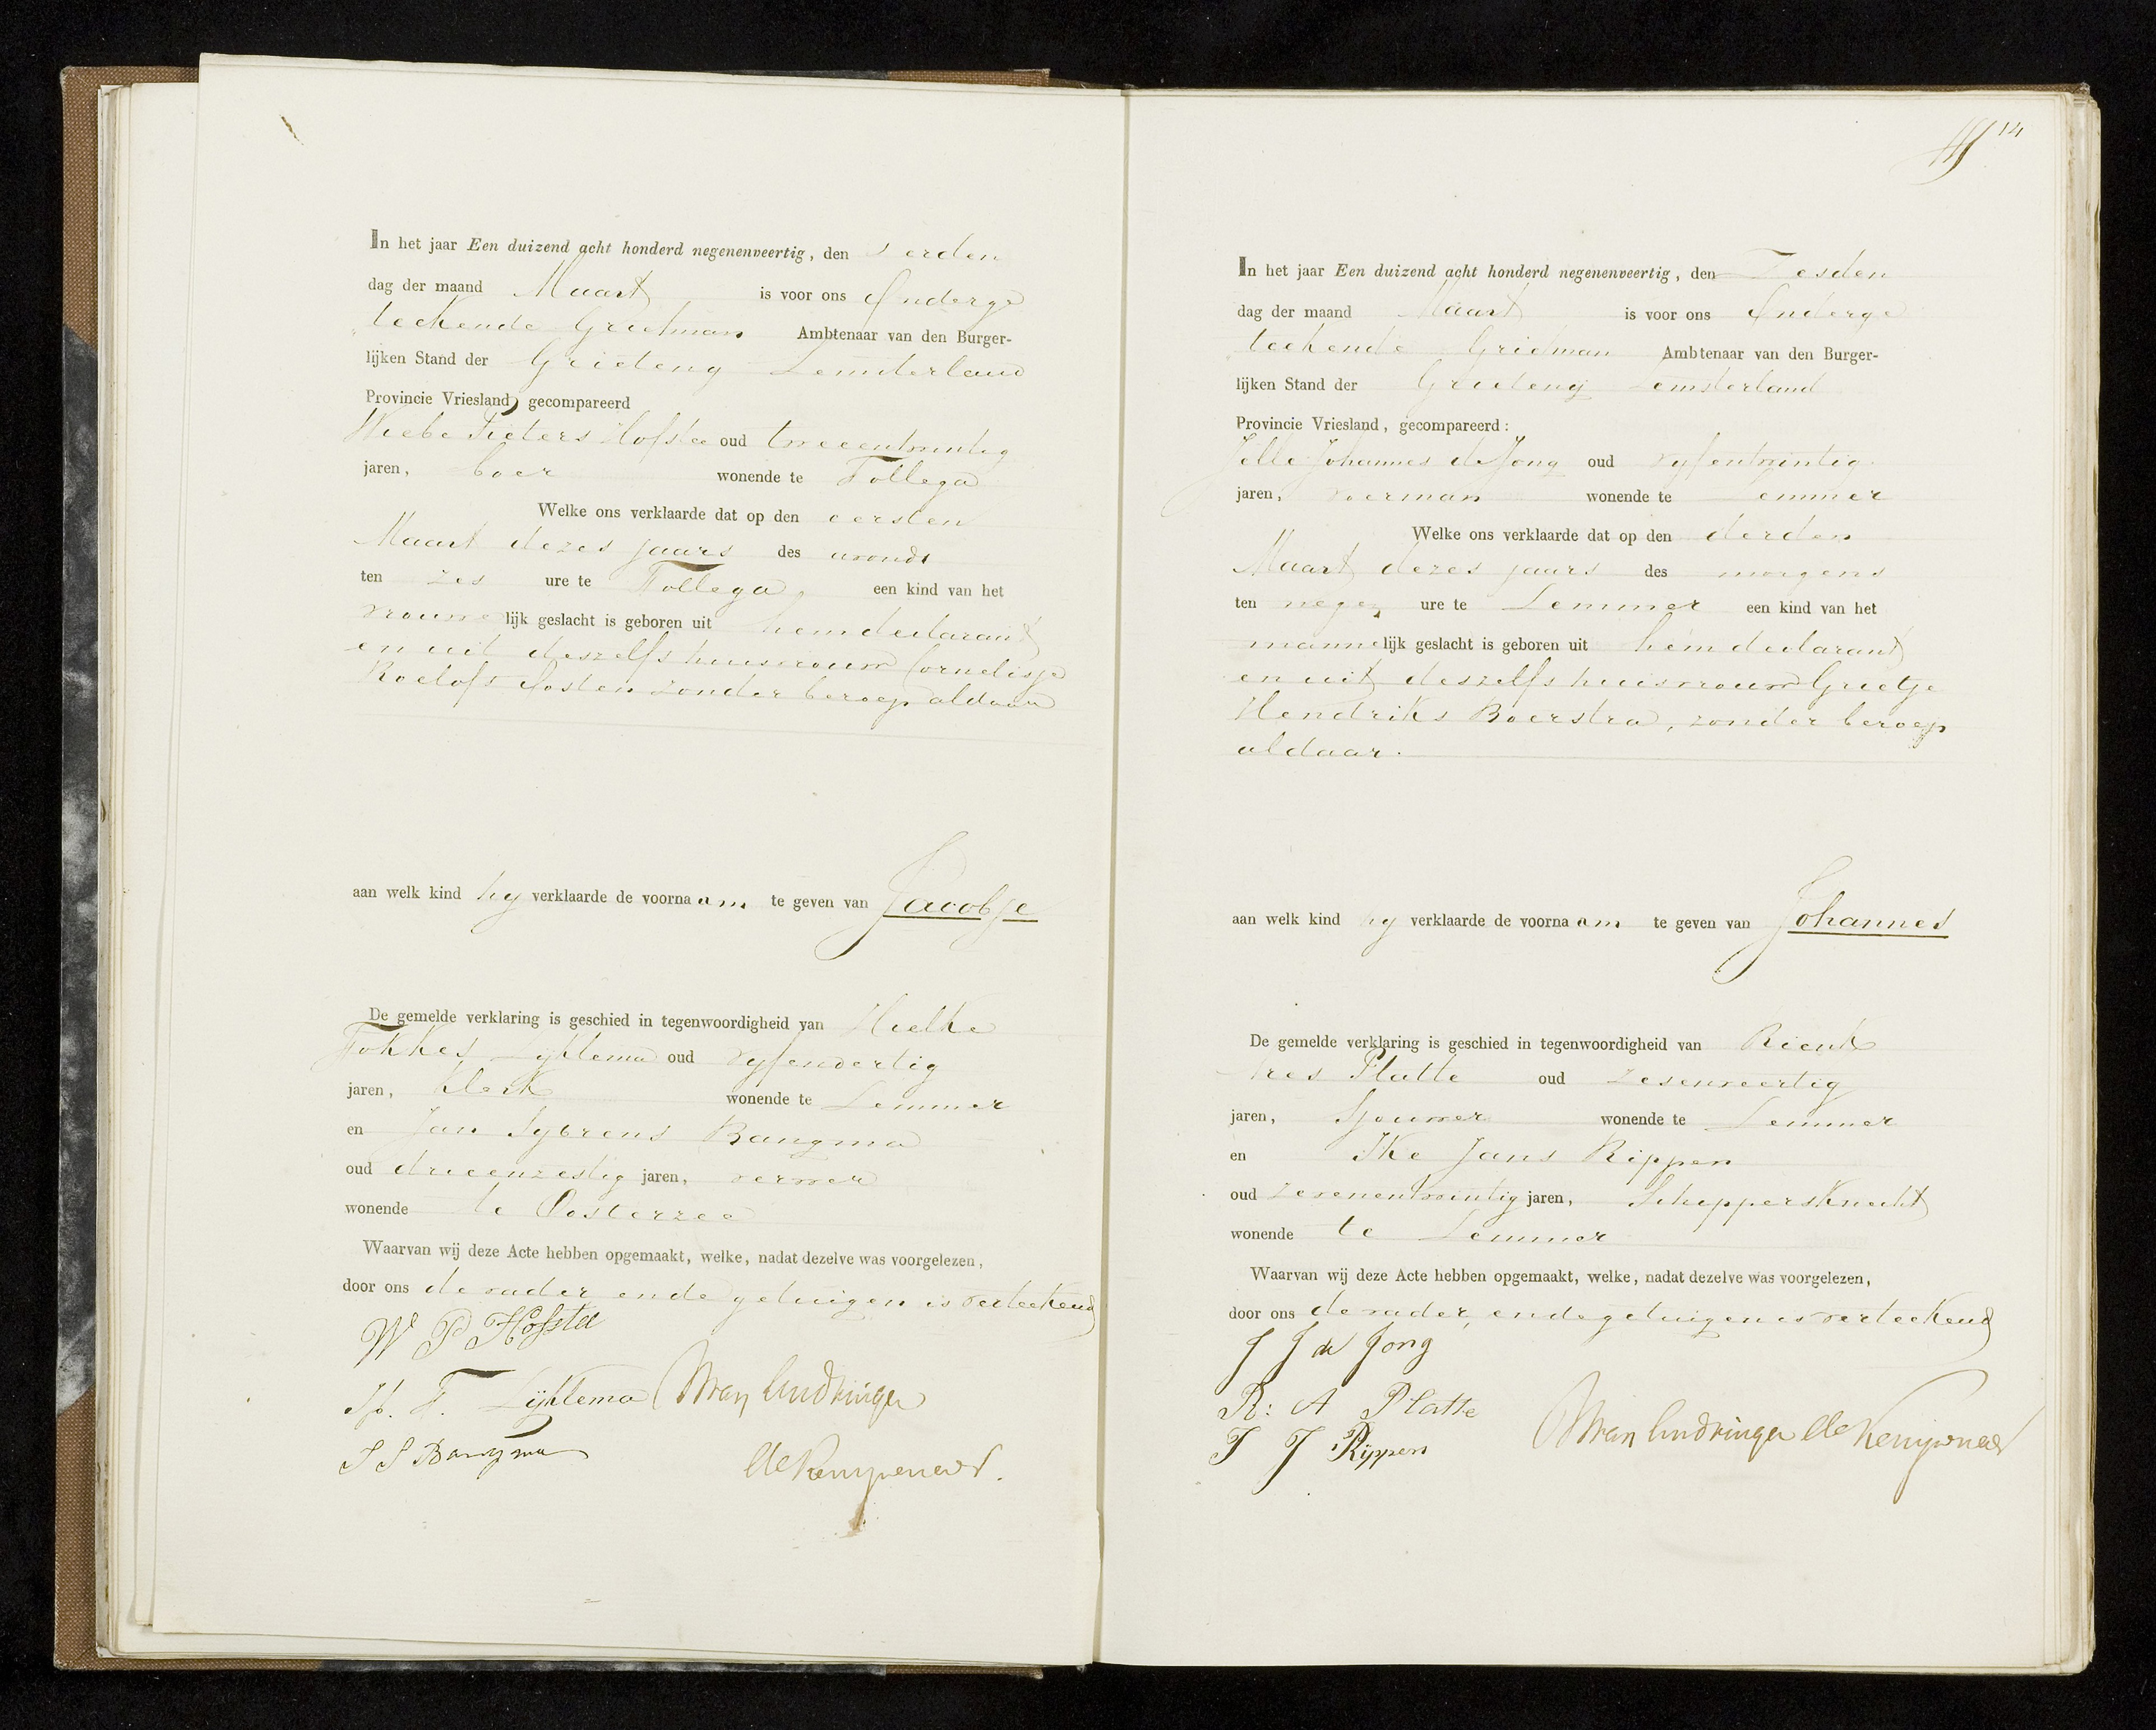 In het jaar Een duizend acht honderd negenenveertig, den
dag der maand Maart is voor ons Onderge
teekende Grietman Ambtenaar van den Burger-
lijken Stand der Grieteny Lemsterland
Provincie Vriesland, gecompareerd
Wiebe Pieters Hofstee oud tweeentwintig
jaren, boer wonende te Follega
Welke ons verklaarde dat op den eersten
Maart dezes jaars des avonds
ten zes ure te Follega, een kind van het
vrouwelijk geslacht is geboren uit hem declarant
en uit deszelfs huisvrouw Cornelisje
Roelofs Oosten zonder beroep aldaar
aan welk kind hy verklaarde de voornaam te geven van Jacobje
De gemelde verklaring is geschied in tegenwoordigheid van Hielke
Fokkes Lyklema oud vyfendertig
jaren, klerk wonende te Lemmer
en Jan Sybrens Bangma
oud drieenzestig jaren, verwer
wonende te Oosterzee
Waarvan wij deze Acte hebben opgemaakt, welke, nadat dezelve was voorgelezen,
door ons de vader en de getuigen is verteekend
W P Hofstee
H. F. Lijklema
J S Bangma
14
In het jaar Een duizend acht honderd negenenveertig, den Zesden
dag der maand Maart is voor ons Onderge
teekende Grietman Ambtenaar van den Burger-
lijken Stand der Grieteny Lemsterland
Provincie Vriesland, gecompareerd:
Jelle Johannes de Jong oud vyfentwintig
jaren, voerman wonende te Lemmer
Welke ons verklaarde dat op den derden
Maart dezes jaars des morgens
ten negen ure te Lemmer een kind van het
mannelijk geslacht is geboren uit hem declarant
en uit deszelfs huisvrouw Grietje
Hendriks Boerstra, zonder beroep
aldaar.
aan welk kind hy verklaarde de voornaam te geven van Johannes
De gemelde verklaring is geschied in tegenwoordigheid van Rienk
Platte oud zesenveertig
jaren, Sjouwer wonende te Lemmer
en IKe Jans Rippen
oud zevenentwintig jaren, Schippersknecht
wonende te Lemmer
Waarvan wij deze Acte hebben opgemaakt, welke, nadat dezelve was voorgelezen,
door ons de vader, en de getuigen is verteekend
J J de Jong
R: A Platte
I J Rippen